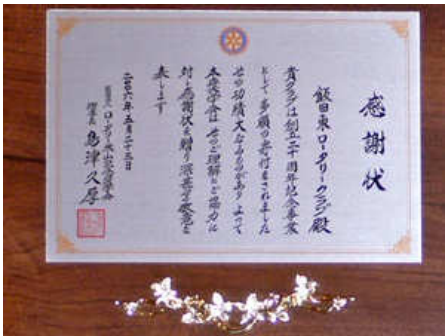 感謝状
飯田東ロータリークラブ殿
貴クラブは創立二十周年記念事業
として多額の寄付をされました
その功績大なるものがあり よって
本奨学会は そのご理解とご協力に
対し感謝状を贈り深甚なる敬意を
表します
二〇〇六年五月二十三日
財団法人 ロータリー米山記念奨学会
理事長 島津久厚